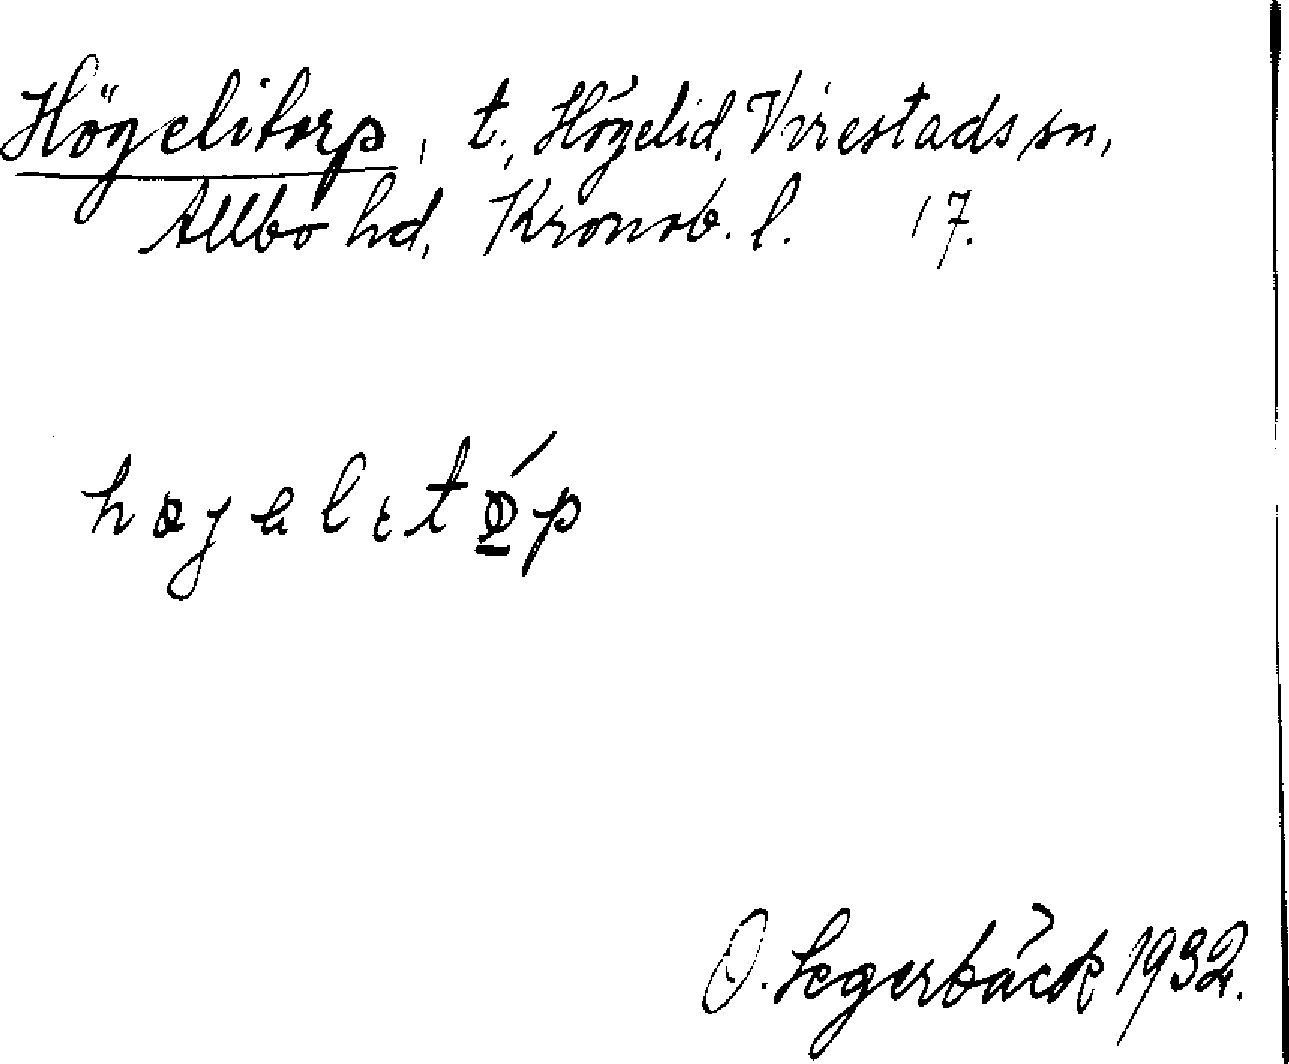 Högelitorp, t. Högelid, Virestads sn,
Allbo hd, Kronob. l. 17.
O. Segerbäck 1932.